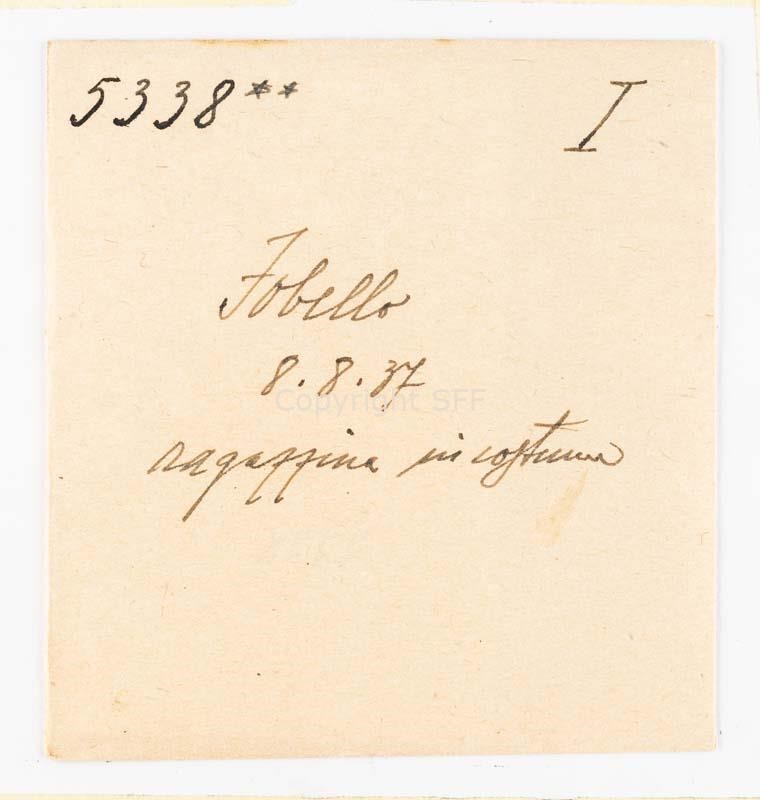 5338** I
Fobello
8.8.37
Copyright SFF
ragazzina in costume